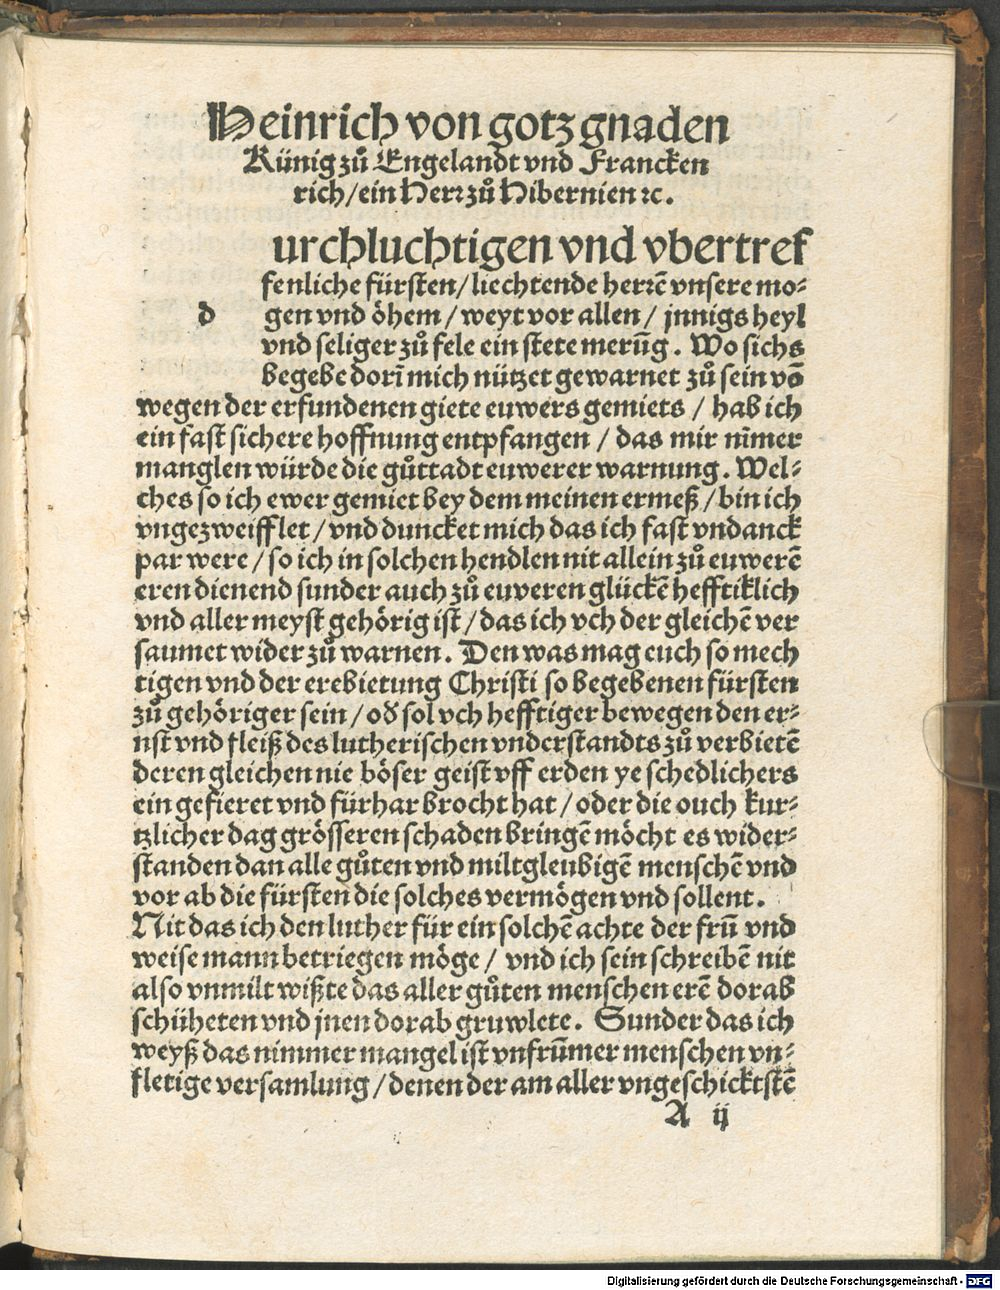 Heinrich von gotz gnaden
Künig zů Engelandt vnd Francken
rich/ein Herꝛ zů Hibernien ꝛc.
urchluchtigen vnd vbertref
fenliche fürsten/liechtende herꝛē vnsere mo⸗
d gen vnd öhem/weyt vor allen/jnnigs heyl
vnd seliger zů fele ein stete merūg. Wo sichs
begebe dorī mich nützet gewarnet zů sein vō
wegen der erfundenen giete euwers gemiets/hab ich
ein fast sichere hoffnung entpfangen/das mir nīmer
manglen würde die gůttadt euwerer warnung. Wel⸗
ches so ich ewer gemiet bey dem meinen ermeß/bin ich
vngezweifflet/vnd duncket mich das ich fast vndanck
par were/so ich in solchen hendlen nit allein zů euwerē
eren dienend sunder auch zů euveren glückē hefftiklich
vnd aller meyst gehörig ist/das ich vch der gleichē ver
saumet wider zů warnen. Den was mag euch so mech
tigen vnd der erebietung Christi so begebenen fürsten
zů gehöriger sein/oď sol vch hefftiger bewegen den er⸗
nst vnd fleiß des lutherischen vnderstandts zů verbietē
deren gleichen nie böser geist vff erden ye schedlichers
ein gefieret vnd fürhar brocht hat/oder die ouch kur⸗
tzlicher dag grösseren schaden bringē möcht es wider⸗
standen dan alle gůten vnd miltgleubigē menschē vnd
vor ab die fürsten die solches vermögen vnd sollent.
Nit das ich den luther für ein solchē achte der frū vnd
weise mann betriegen möge/vnd ich sein schreibē nit
also vnmilt wißte das aller gůten menschen erē dorab
schüheten vnd jnen dorab gruwlete. Sunder das ich
weyß das nimmer mangel ist vnfrūmer menschen vn⸗
fletige versamlung/denen der am aller vngeschicktstē
A ij
Digitalisierung gefördert durch die Deutsche Forschungsgemeinschaft - DFG